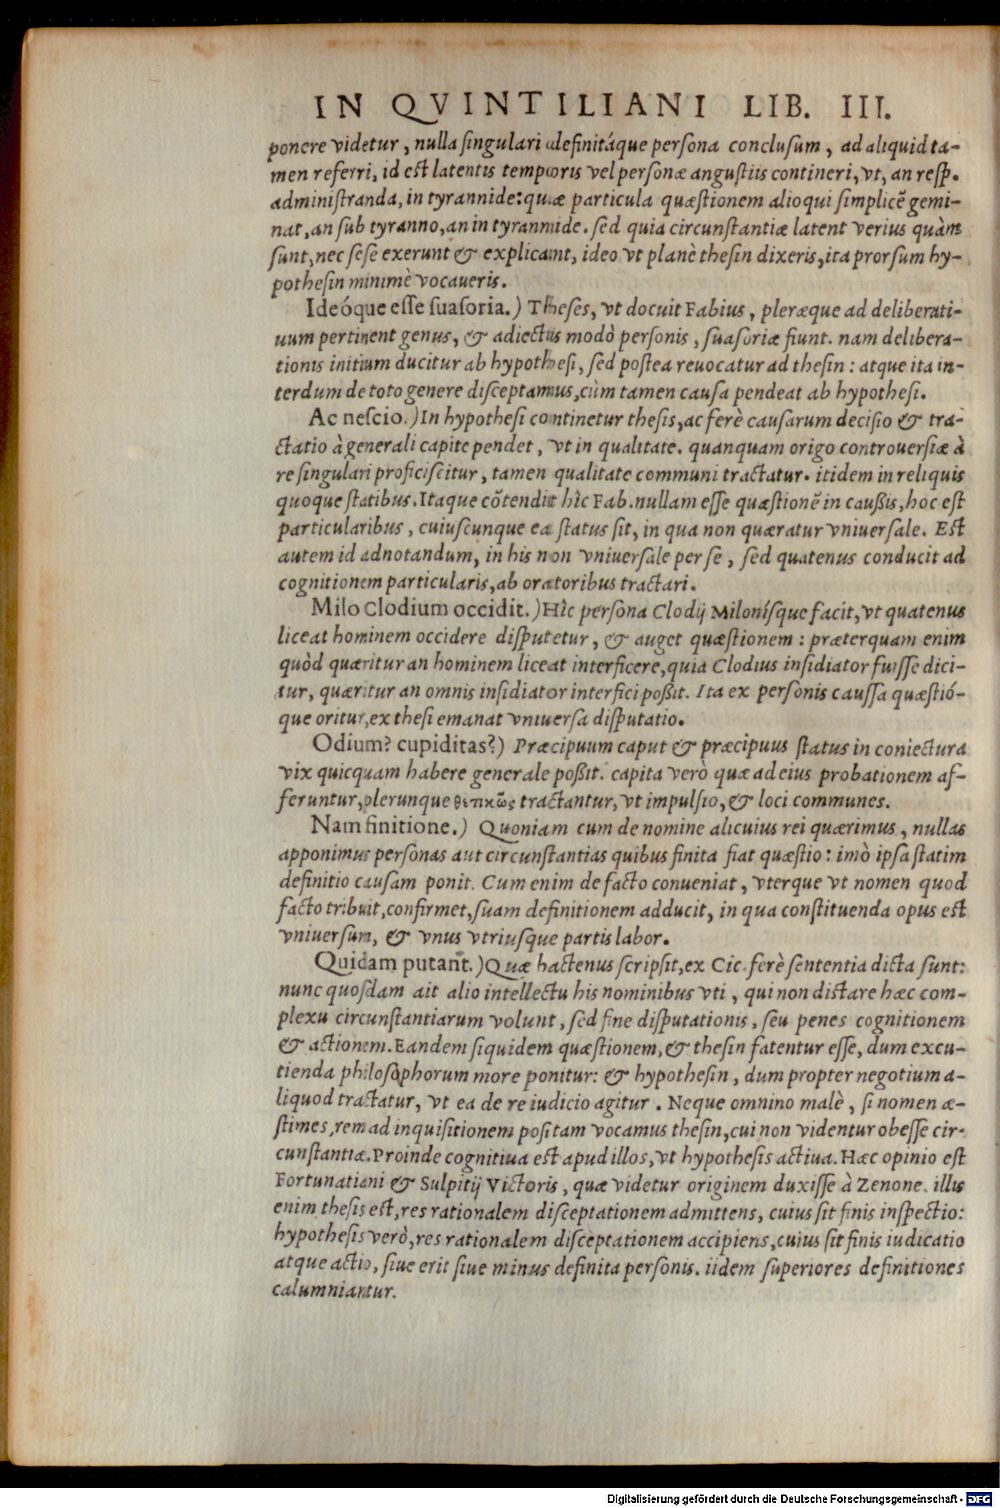 IN QVINTILIANI LIB. III.
ponere videtur, nulla singulari definitáque persona conclusum, ad aliquid ta-
men referri, id est latentis temporis vel personæ angustiis contineri, vt, an resp.
administranda, in tyrannide: quæ particula quæstionem alioqui simplicẽ gemi-
nat, an sub tyranno, an in tyrannide. sed quia circunstantiæ latent verius quàm
sunt, nec sese exerunt & explicant, ideo vt planè thesin dixeris, ita prorsum hy-
pothesin minimè vocaueris.
Ideóque esse suasoria.) Theses, vt docuit Fabius, pleræque ad deliberati-
uum pertinent genus, & adiectis modò personis, suasoriæ fiunt. nam delibera-
tionis initium ducitur ab hypothesi, sed postea reuocatur ad thesin: atque ita in-
terdum de toto genere disceptamus, cùm tamen causa pendeat ab hypothesi.
Ac nescio.) In hypothesi continetur thesis, ac ferè causarum decisio & tra-
ctatio à generali capite pendet, vt in qualitate. quanquam origo controuersiæ à
re singulari proficiscitur, tamen qualitate communi tractatur. itidem in reliquis
quoque statibus. Itaque cõtendit hîc Fab. nullam esse quæstionẽ in caußis, hoc est
particularibus, cuiuscunque ea status sit, in qua non quæratur vniuersale. Est
autem id adnotandum, in his non vniuersale per se, sed quatenus conducit ad
cognitionem particularis, ab oratoribus tractari.
Milo Clodium occidit.) Hîc persona Clodij Milonísque facit, vt quatenus
liceat hominem occidere disputetur, & auget quæstionem: præterquam enim
quòd quæritur an hominem liceat interficere, quia Clodius insidiator fuisse dici-
tur, quæritur an omnis insidiator interfici poßit. Ita ex personis caussa quæstió-
que oritur, ex thesi emanat vniuersa disputatio.
Odium? cupiditas?) Præcipuum caput & præcipuus status in coniectura
vix quicquam habere generale poßit. capita verò quæ ad eius probationem af-
feruntur, plerunque θετικῶς tractantur, vt impulsio, & loci communes.
Nam finitione.) Quoniam cum de nomine alicuius rei quærimus, nullas
apponimus personas aut circunstantias quibus finita fiat quæstio: imò ipsa statim
definitio causam ponit. Cum enim de facto conueniat, vterque vt nomen quod
facto tribuit, confirmet, suam definitionem adducit, in qua constituenda opus est
vniuersum, & vnus vtriusque partis labor.
Quidam putant.) Quæ hactenus scripsit, ex Cic. ferè sententia dicta sunt:
nunc quosdam ait alio intellectu his nominibus vti, qui non distare hæc com-
plexu circunstantiarum volunt, sed fine disputationis, seu penes cognitionem
& actionem. Eandem siquidem quæstionem, & thesin fatentur esse, dum excu-
tienda philosophorum more ponitur: & hypothesin, dum propter negotium a-
liquod tractatur, vt ea de re iudicio agitur. Neque omnino malè, si nomen æ-
stimes, rem ad inquisitionem positam vocamus thesin, cui non videntur obesse cir-
cunstantiæ. Proinde cognitiua est apud illos, vt hypothesis actiua. Hæc opinio est
Fortunatiani & Sulpitij Victoris, quæ videtur originem duxisse à Zenone. illis
enim thesis est, res rationalem disceptationem admittens, cuius sit finis inspectio:
hypothesis verò, res rationalem disceptationem accipiens, cuius sit finis iudicatio
atque actio, siue erit siue minus definita personis. iidem superiores definitiones
calumniantur.
Digitalisierung gefördert durch die Deutsche Forschungsgemeinschaft - DFG